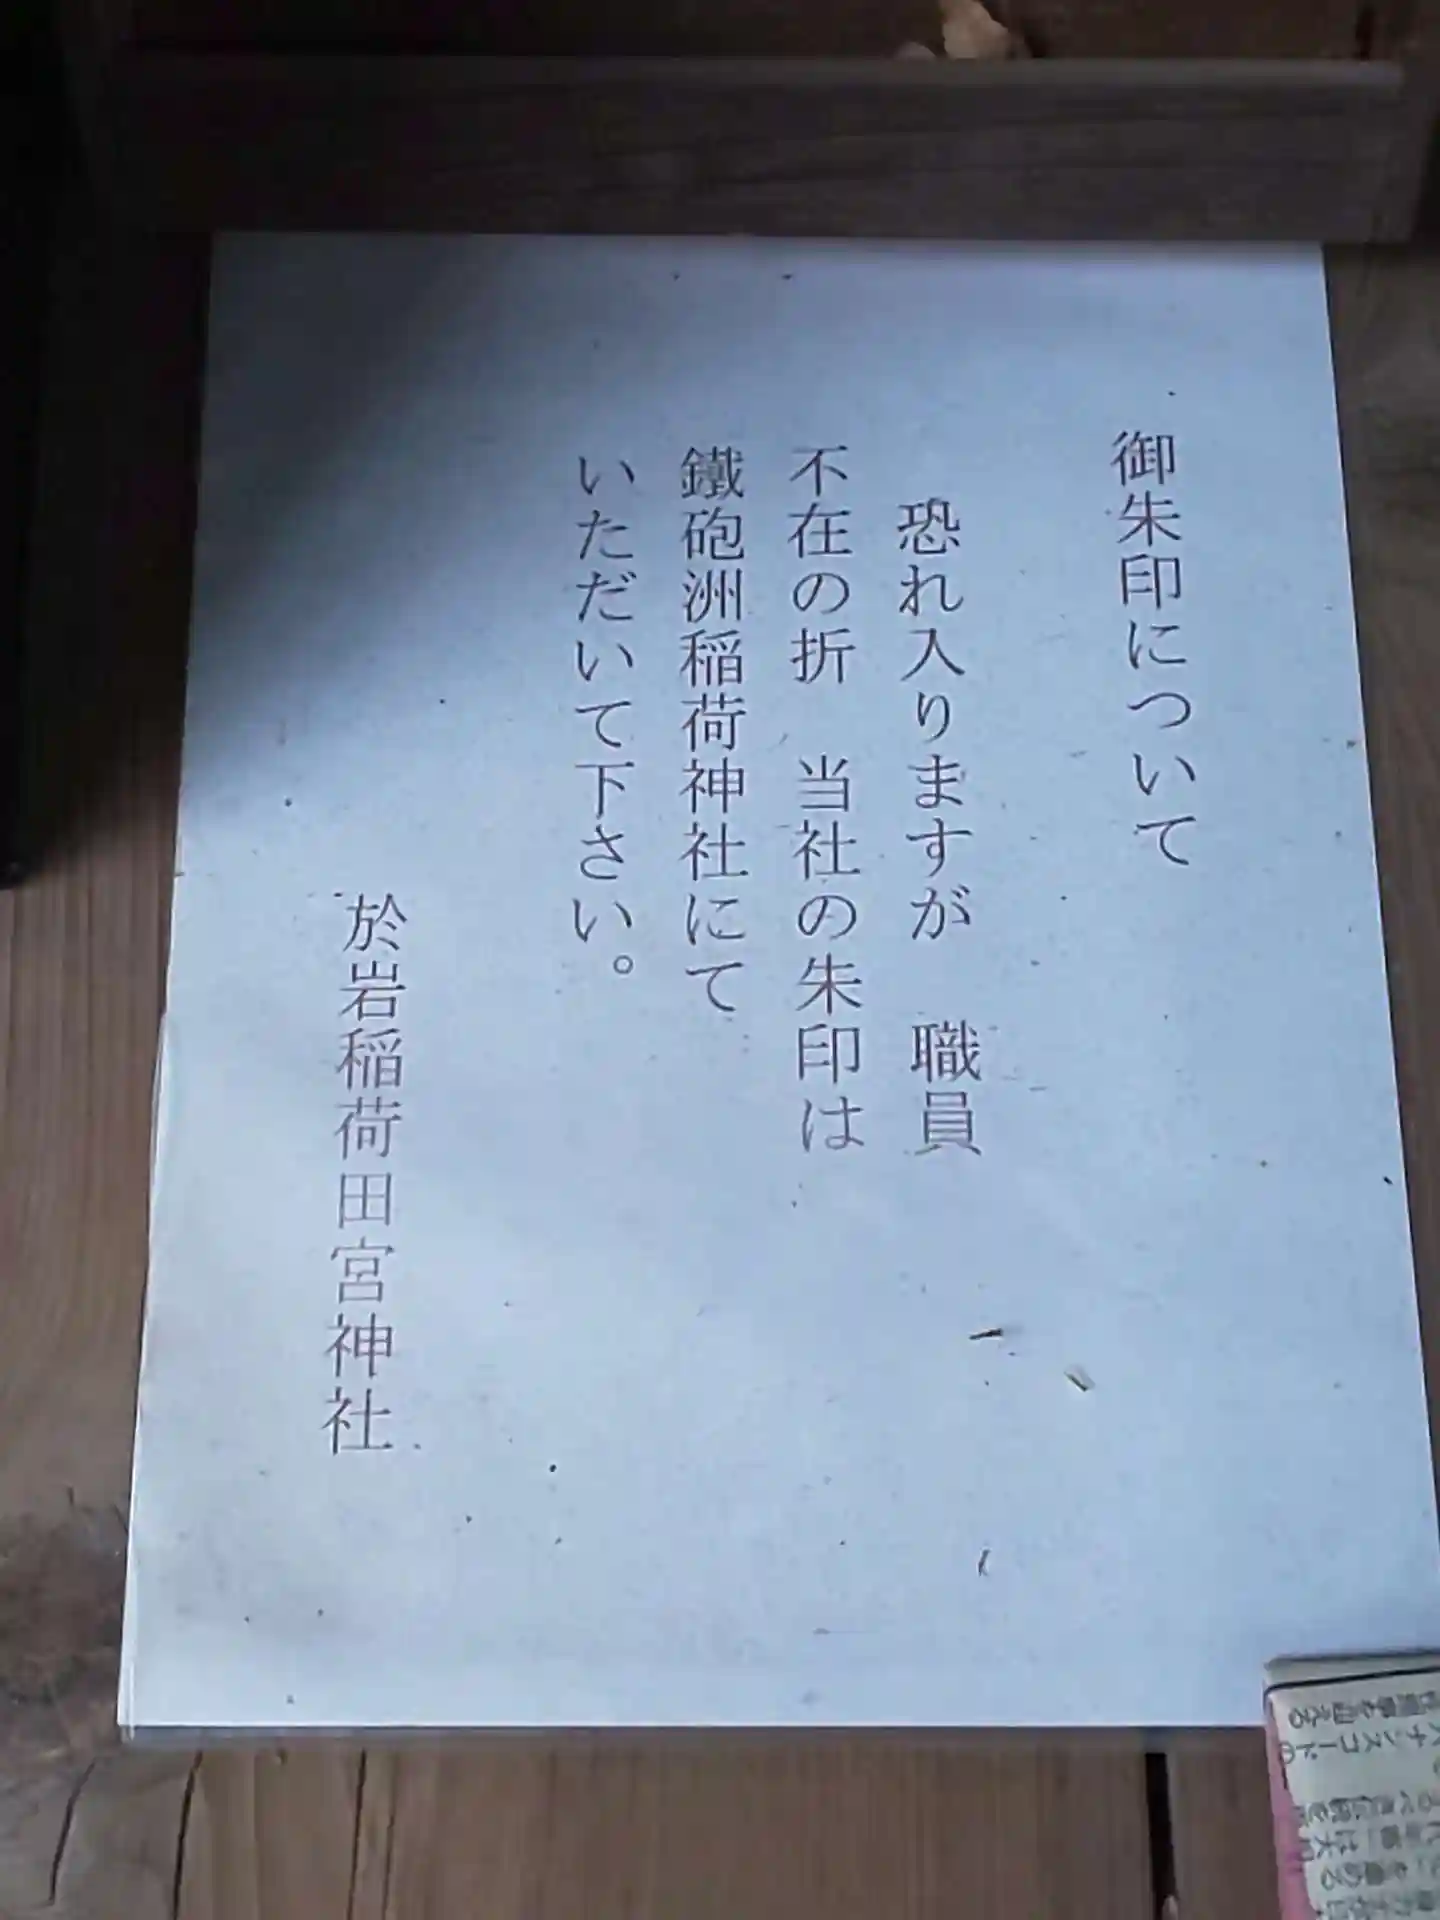 御朱印について
恐れ入りますが 職員
不在の折 当社の朱印は
鐵砲洲稲荷神社にて
いただいて下さい。
於岩稲荷田宮神社